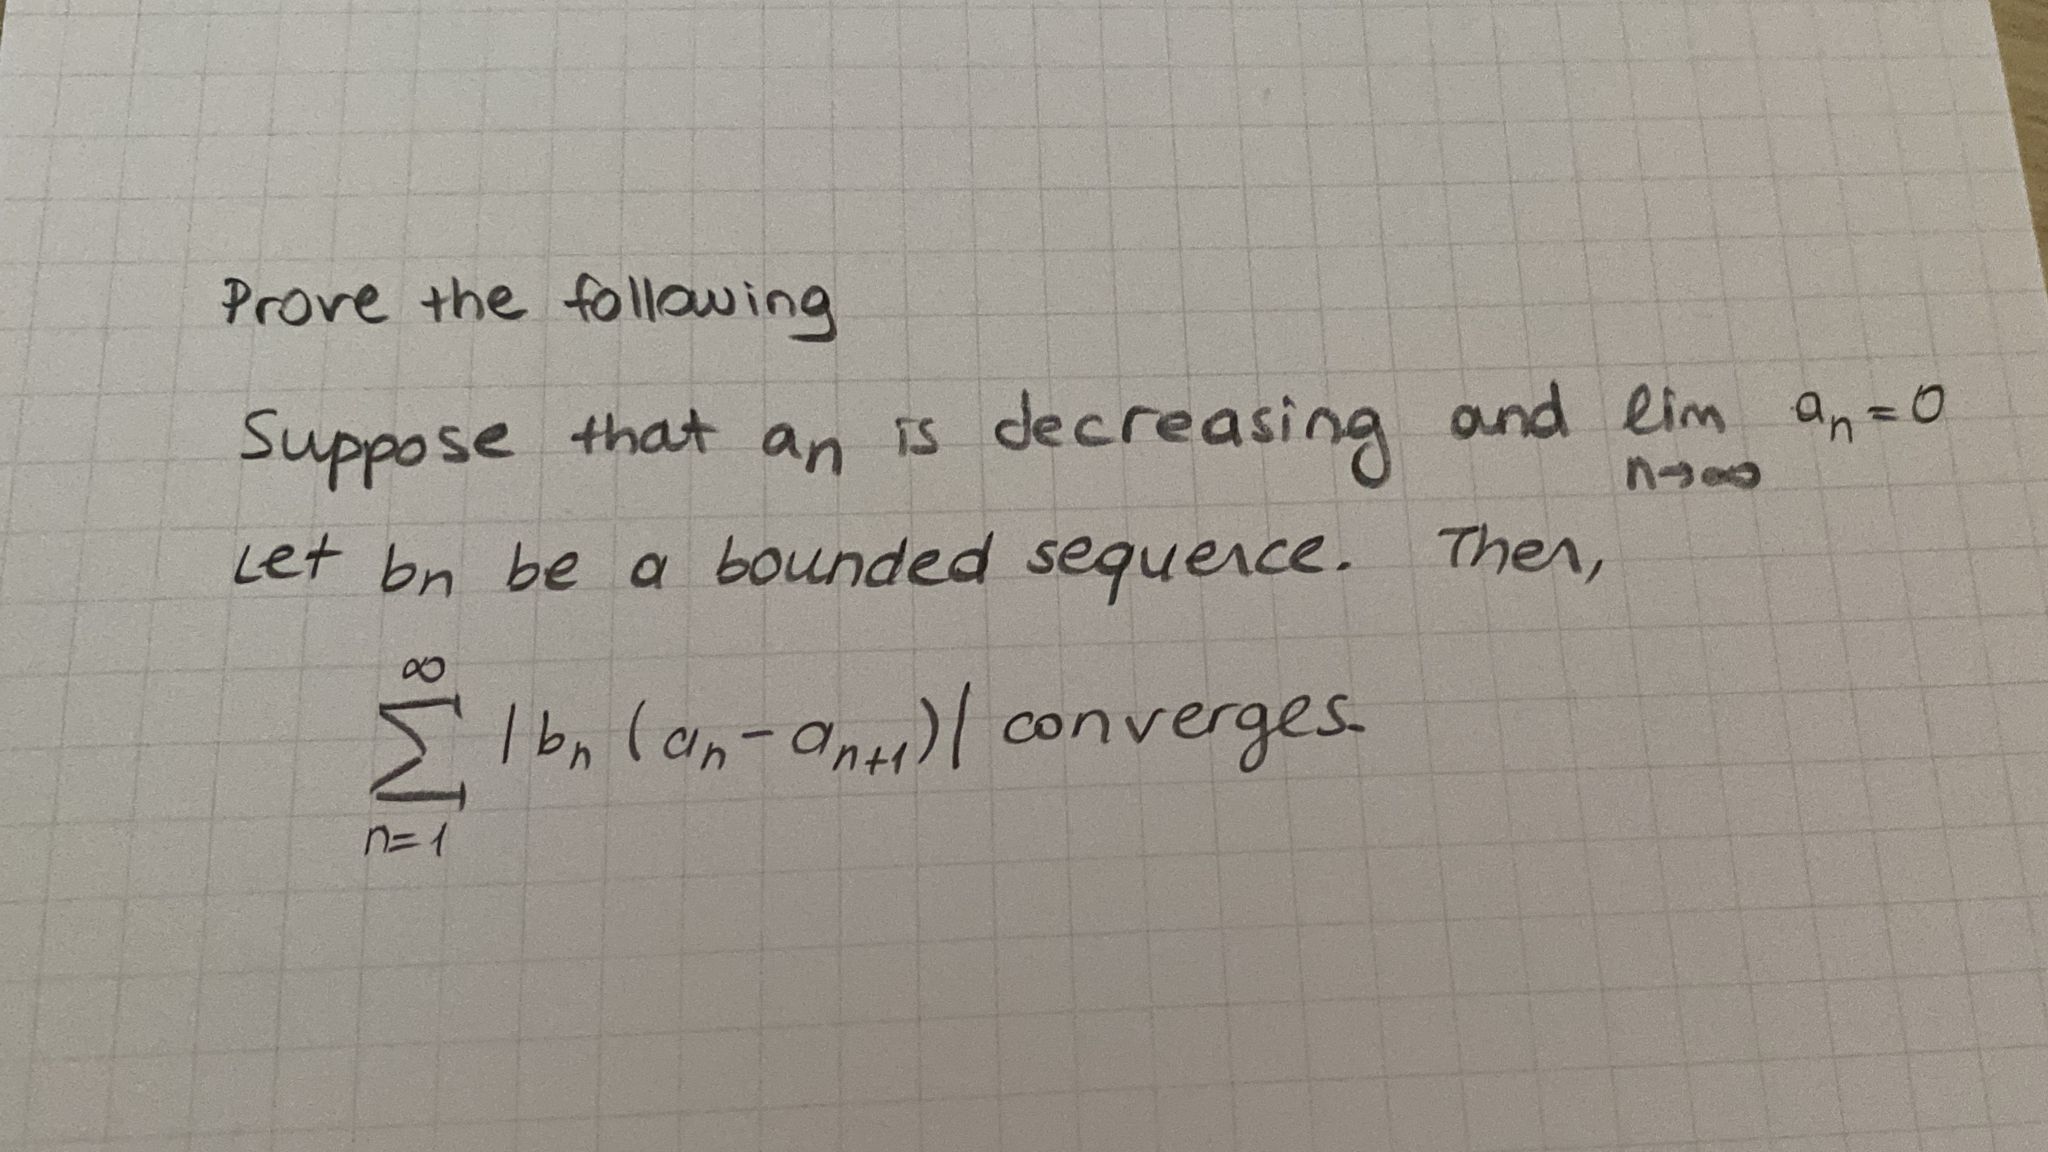 Prove the following
Suppose that aₙ is decreasing and lim aₙ = 0
n→∞
Let bₙ be a bounded sequence. Then,
∞
∑ |bₙ (aₙ - aₙ₊₁)| converges.
n=1